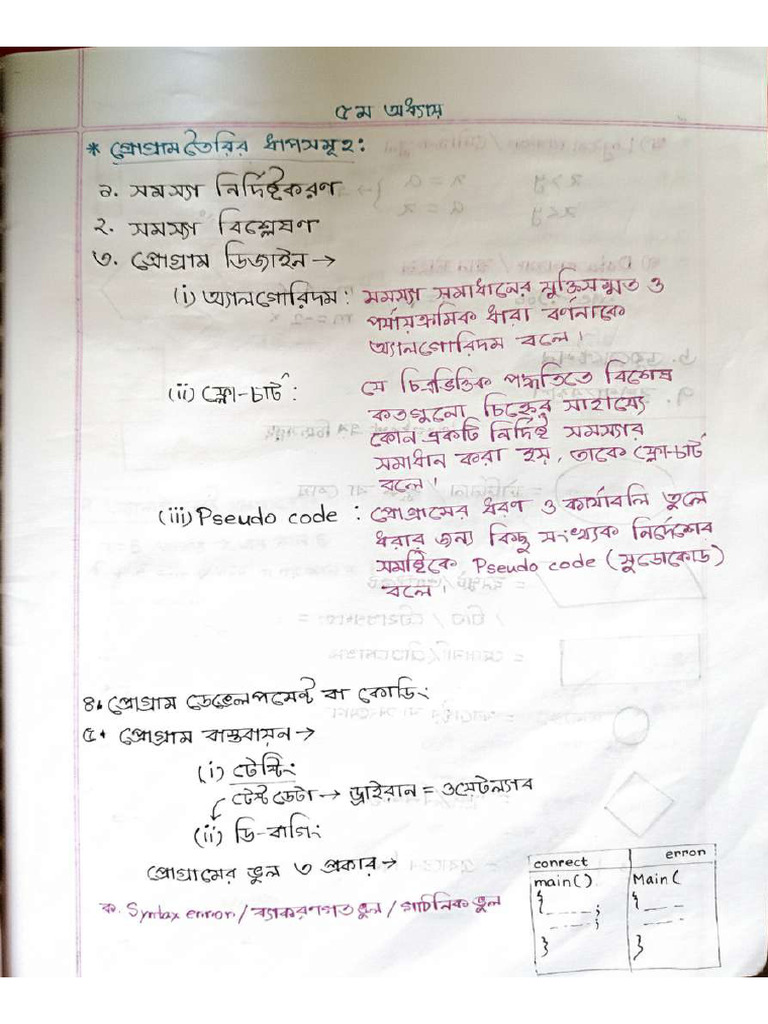 ৫ম অধ্যায়
* প্রোগ্রাম তৈরির ধাপসমূহ:
১. সমস্যা নির্দিষ্টকরণ
২. সমস্যা বিশ্লেষণ
৩. প্রোগ্রাম ডিজাইন →
(i) অ্যালগোরিদম : সমস্যা সমাধানের যুক্তিসম্মত ও
পর্যায়ক্রমিক ধারা বর্ণনাকে
অ্যালগোরিদম বলে।
(ii) ফ্লো-চার্ট : যে চিত্রভিত্তিক পদ্ধতিতে বিশেষ
কতগুলো চিহ্নের সাহায্যে
কোন একটি নির্দিষ্ট সমস্যার
সমাধান করা হয়, তাকে ফ্লো-চার্ট
বলে।
(iii) Pseudo code : প্রোগ্রামের ধরণ ও কার্যাবলি তুলে
ধরার জন্য কিছু সংখ্যক নির্দেশের
সমষ্টিকে Pseudo code (সুডোকোড)
বলে।
৪. প্রোগ্রাম ডেভেলপমেন্ট বা কোডিং
৫. প্রোগ্রাম বাস্তবায়ন →
(i) টেস্টিং
টেস্ট ডেটা → ড্রাইরান = ওয়েটল্যাব
(ii) ডি-বাগিং
প্রোগ্রামের ভুল ৩ প্রকার →
ক. Syntax error / ব্যাকরণগত ভুল /
correct error
main() Main(
{ {
; 
;
} }